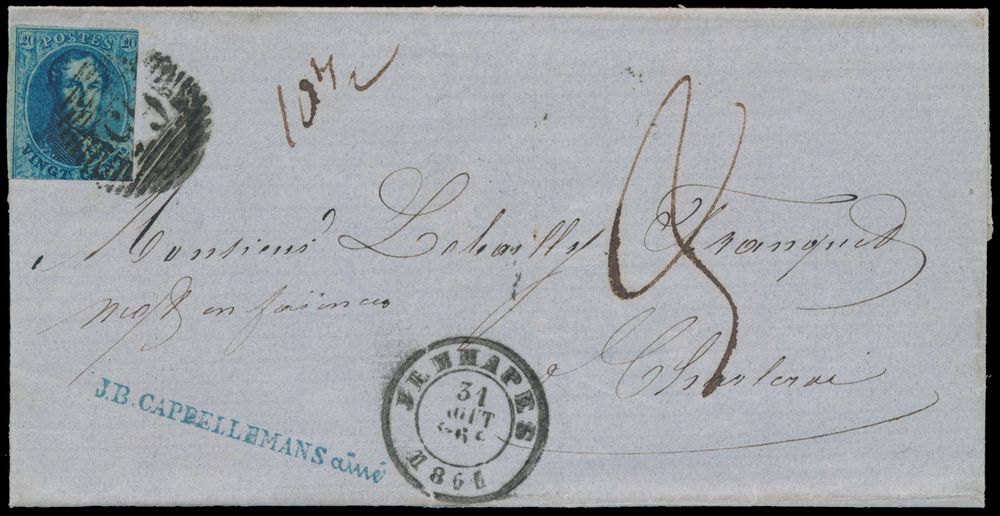 20 POSTES 20
VINGT
10 1/2
Monsieur Lebailly Franquet
Negt en faïences
à Charleroi
J.B. CAPPELLEMANS aîné
JEMMAPES
31
AOUT
1861